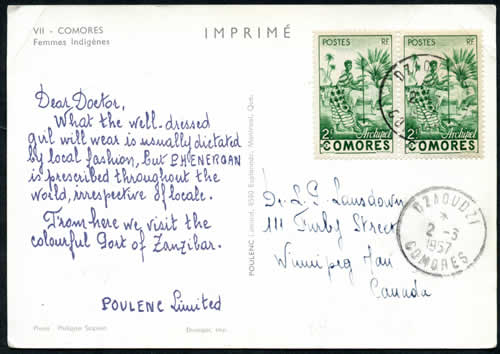 VII - COMORES
Femmes Indigènes
IMPRIMÉ
POSTES RF
2F Archipel
COMORES
POSTES RF
2F Archipel
COMORES
DZAOUDZI
Dear Doctor,
What the well-dressed
girl will wear is usually dictated
by local fashion, but PHENERGAN
is prescribed throughout the
world, irrespective of locale.
From here we visit the
colourful Port of Zanzibar.
POULENC Limited
POULENC Limited, 8580 Esplanade, Montreal, Que.
Dr. L.G. Lansdown
111 Furby Street
Winnipeg Man
Canada
DZAOUDZI
2 -3
1957
COMORES
Photo : Philippe
imp.